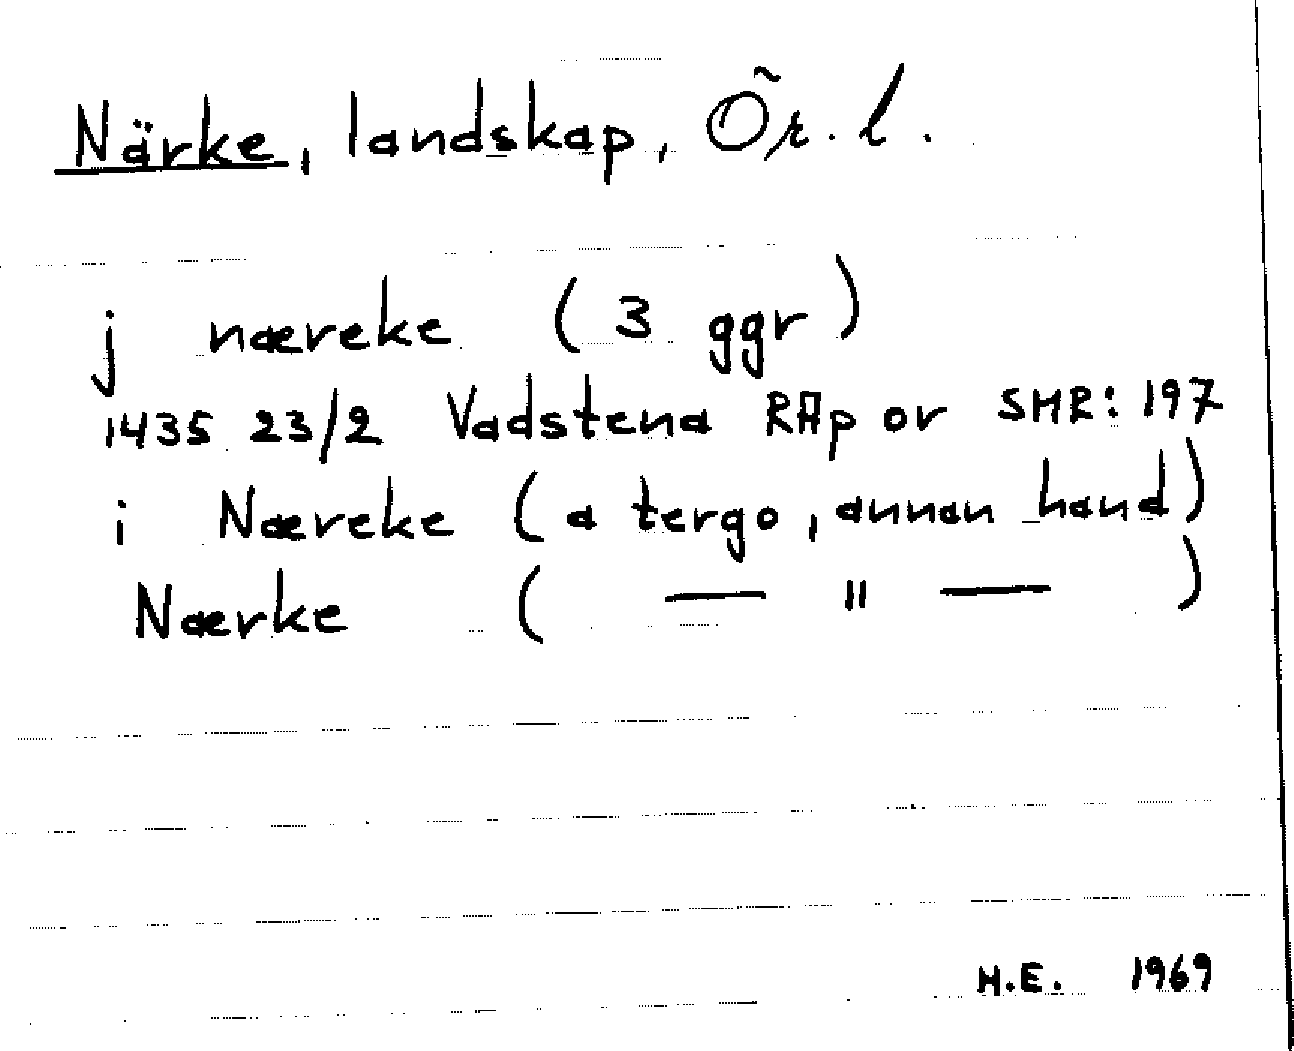 Närke, landskap, Ör. l.
j næreke ( 3 ggr )
1435 23/2 Vadstena RAp or SMR: 197
i Næreke ( a tergo, annan hand )
Nærke ( — " — )
H.E. 1969